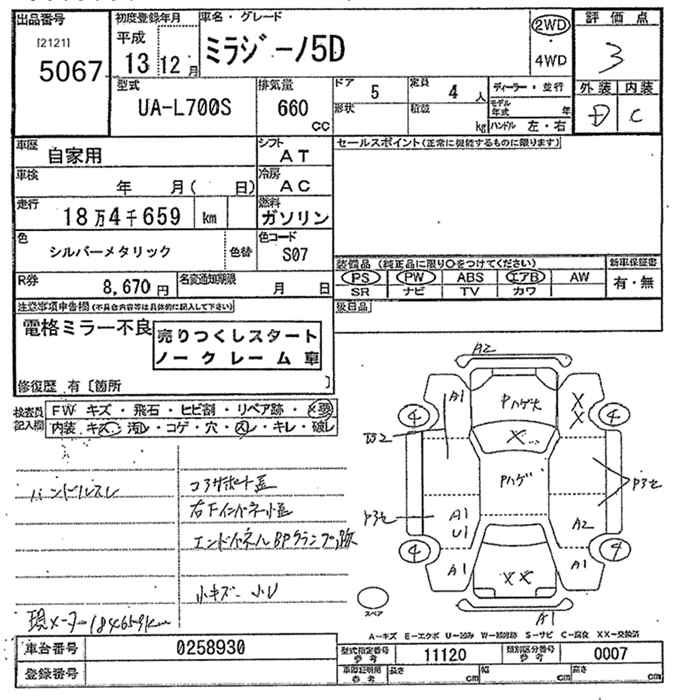 出品番号
[2121]
5067
初度登録年月
平成
13 12 月
車名・グレード
ミラジーノ5D
2WD
・
4WD
評価点
3
型式
UA-L700S
排気量
660
CC
ドア 5
定員 4 人
形状
積載 kg
ディーラー・並行
モデル年式 年
ハンドル 左・右
外装 内装
D C
車歴
自家用
シフト
AT
セールスポイント(正常に機能するものに限ります)
車検
年 月( 日)
冷房
AC
走行
18万4千659 km
燃料
ガソリン
色
シルバーメタリック
色替
色コード
S07
装備品(純正品に限り○をつけてください)
新車保証書
PS PW ABS エアB AW
有・無
SR ナビ TV カワ
R券
8,670 円
名変通知期限
月 日
後日品
注意事項申告欄(不具合内容等は具体的に記入して下さい)
電格ミラー不良
売りつくしスタート
ノークレーム車
修復歴 有〔箇所 〕
検査員
記入欄
FW キズ・飛石・ヒビ割・リペア跡・×要
内装・キズ・汚レ・コゲ・穴・スレ・キレ・破レ
ハンドルスレ
コアサポート歪
右下インナーパネル小歪
エンドパネルBPクランプ跡
小キズ・小U
現メーター184659km
A2
A1
Pハゲ大
X
X
4
4
W2
X
Pハゲ
P3セ
P3セ
A1
U1
A2
4
4
A1
XX
A1
A1
スペア
A-キズ E-エクボ U-凹み W-補修跡 S-サビ C-腐食 XX-交換済
車台番号
0258930
型式指定番号
参考
11120
類別区分番号
参考
0007
登録番号
車両寸法
参考
長さ cm
幅 cm
高さ cm